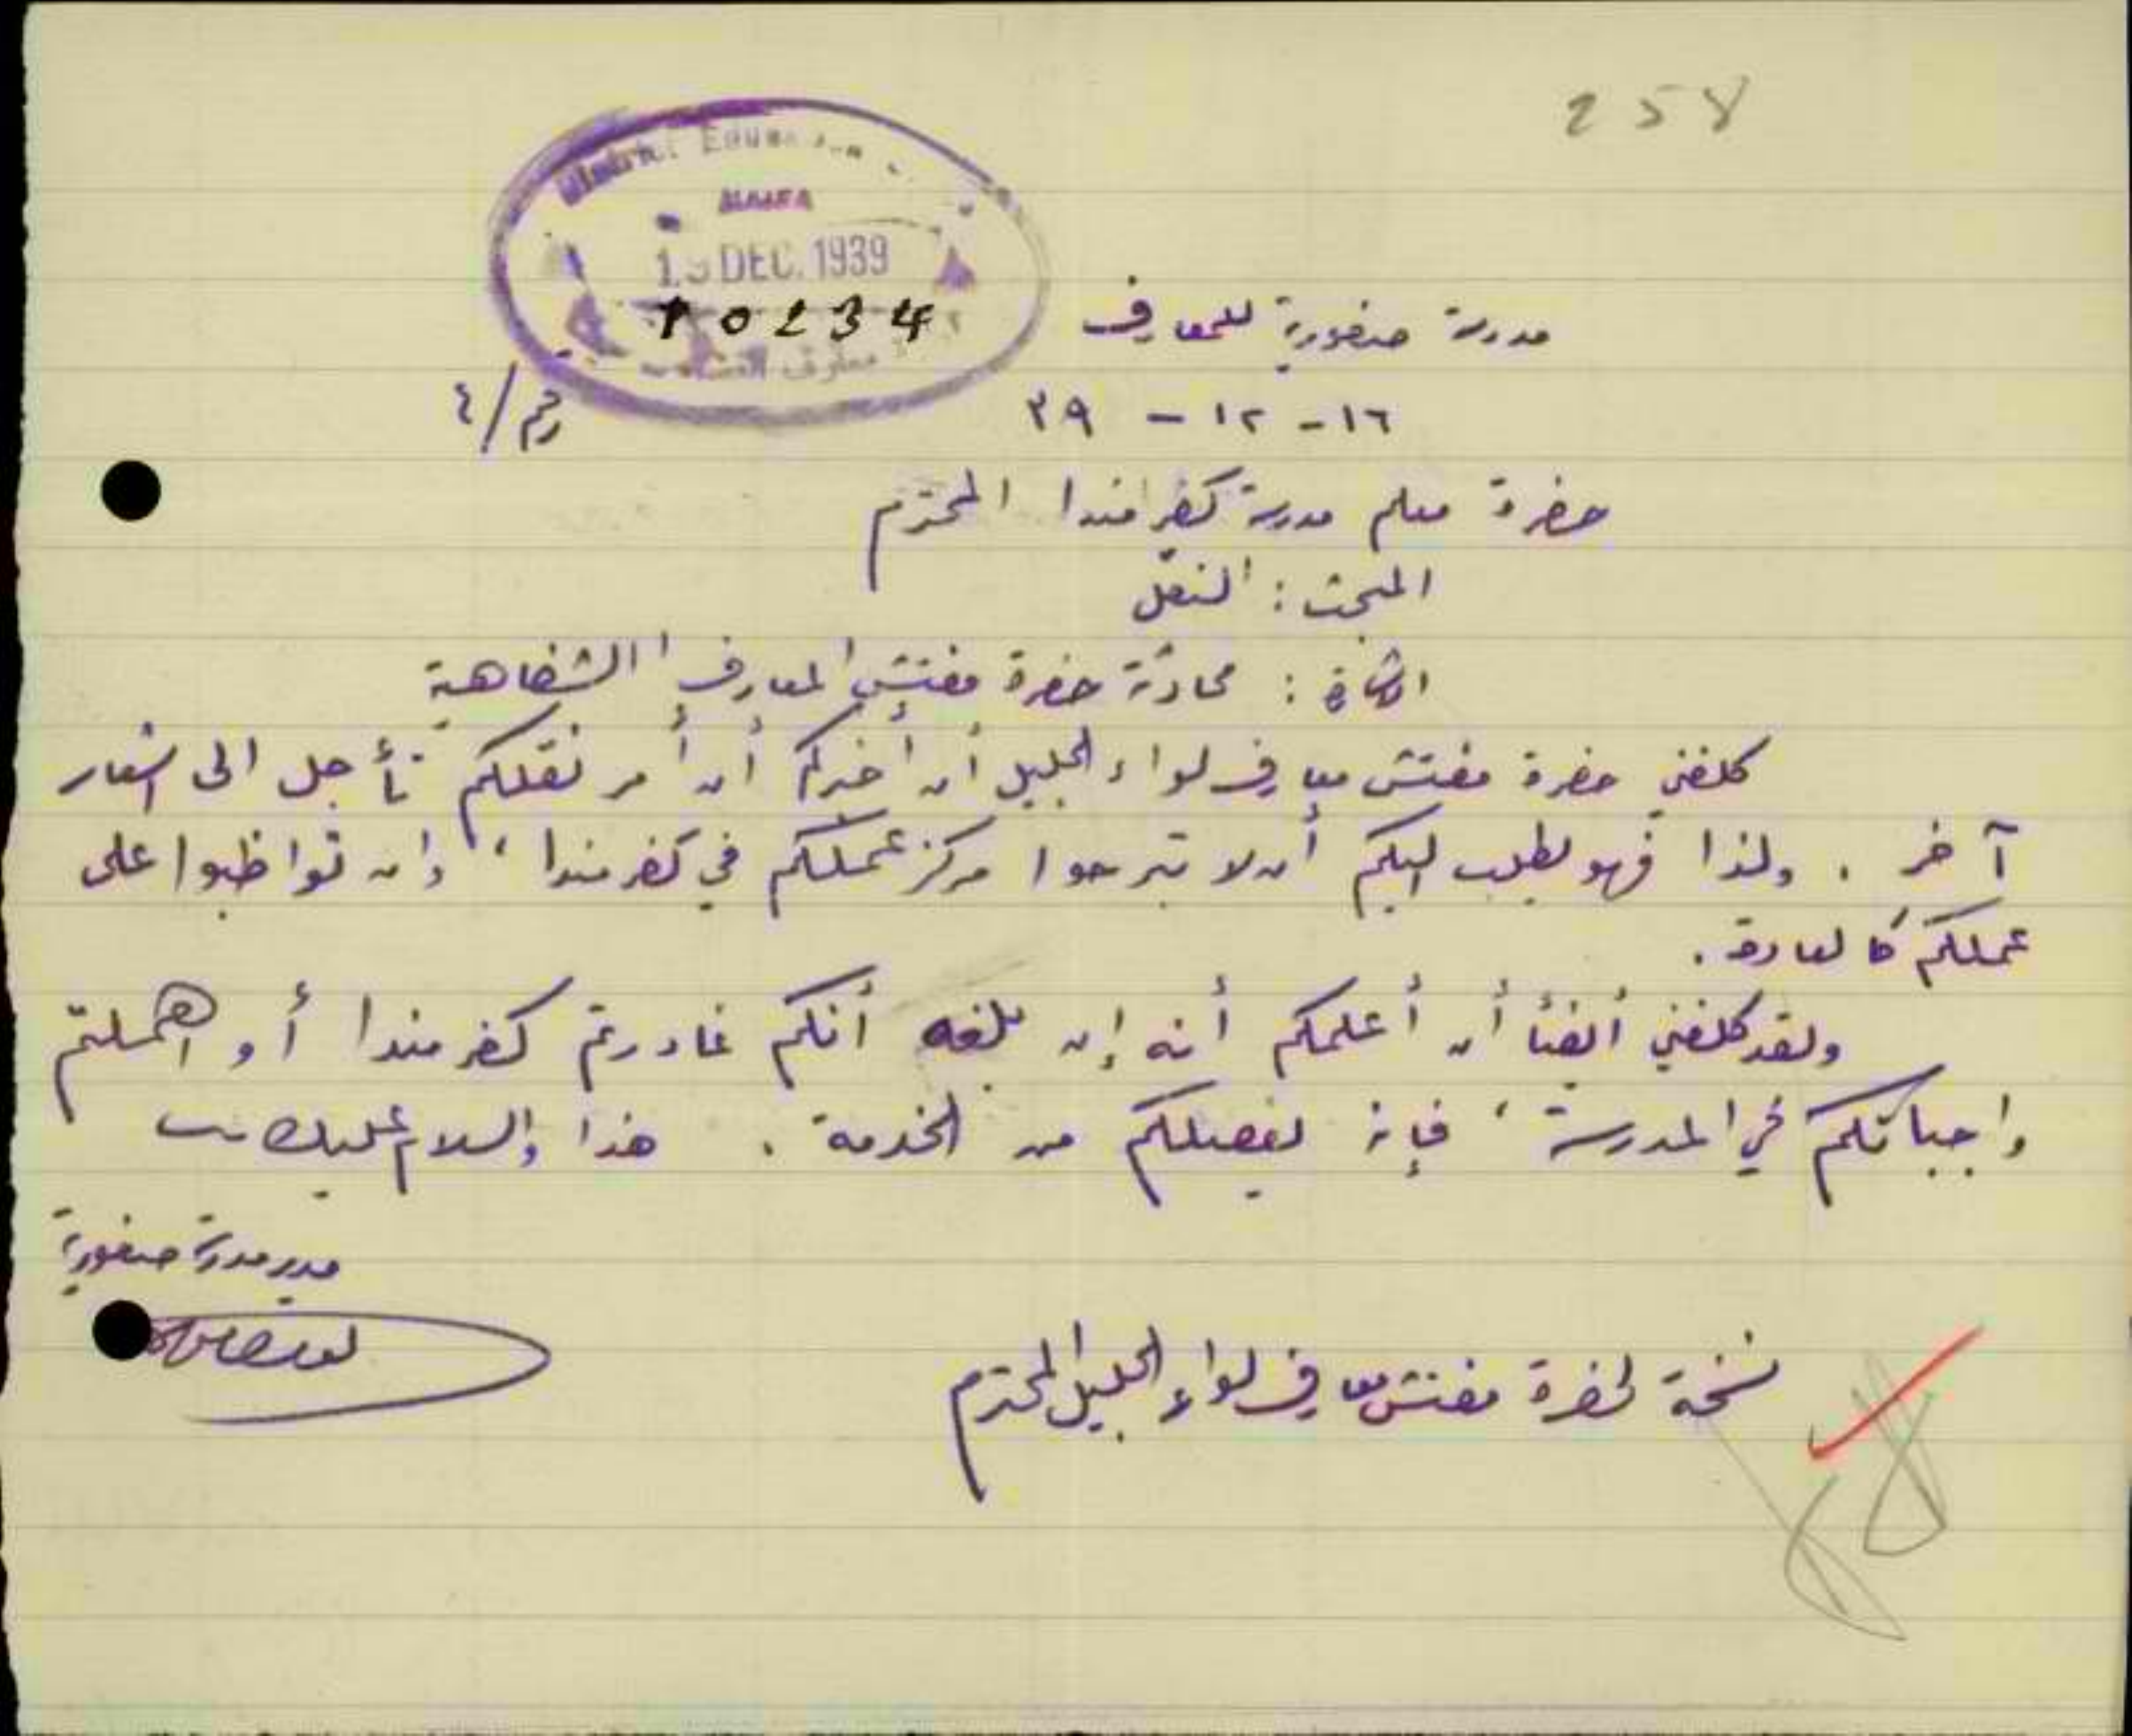 258
District
HAIFA
DEC. 1939
10234
معارف
مدرسة صفورية للمعارف
١٦ - ١٢ - ٣٩
رقم / ٤
حضرة معلم مدرسة كفر مندا المحترم
المبحث : النقل
الاشارة : محادثة حضرة مفتش المعارف الشفاهية
كلفني حضرة مفتش معارف لواء الجليل أن أخبركم أن أمر نقلكم تأجل الى اشعار
آخر . ولذا فهو يطلب اليكم أن لا تبرحوا مركز عملكم في كفر مندا ، وان تواظبوا على
عملكم كالعادة .
ولقد كلفني أيضاً أن أعلمكم أنه إن بلغه أنكم غادرتم كفر مندا أو اهملتم
واجباتكم في المدرسة ، فإنه يفصلكم من الخدمة . هذا والسلام عليكم
مدير مدرسة صفورية
نسخة لحضرة مفتش معارف لواء الجليل المحترم